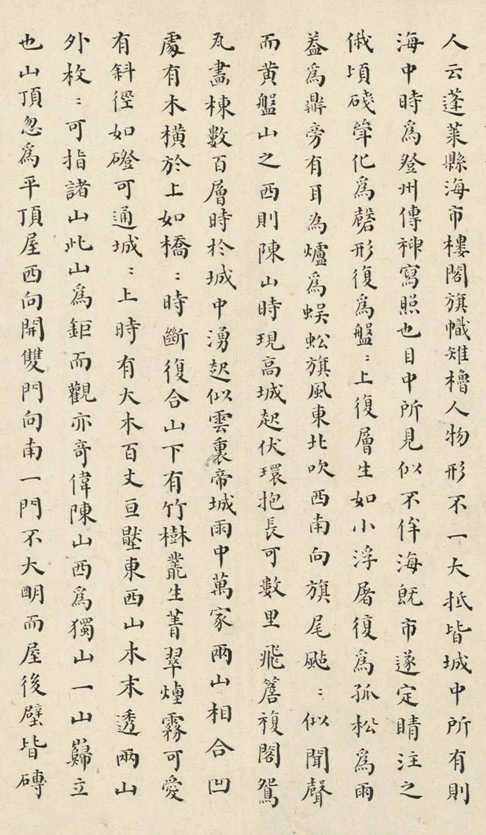 人云蓬萊縣海市樓閣旗幟雉櫓人物形不一大抵皆城中所有則
海中時為登州傳神寫照也目中所見似不侔海既市遂定睛注之
俄頃礟聳化為罄形復為盤〻上復層生如小浮屠復為孤松為雨
蓋為鼎旁有耳為爐為蜈蚣旗風東北吹西南向旗尾颭〻似聞聲
而黄盤山之西則陳山時現高城起伏環抱長可數里飛簷複閣鴛
瓦畫棟數百層時於城中湧起似雲裏帝城雨中萬家兩山相合凹
處有木橫於上如橋〻時斷復合山下有竹樹叢生菁翠煙霧可愛
有斜徑如磴可通城〻上時有大木百丈亘壓東西山木末透兩山
外枚〻可指諸山此山為鉅而觀亦奇偉陳山西為獨山一山巋立
也山頂忽為平頂屋西向開雙門向南一門不大明而屋後壁皆磚